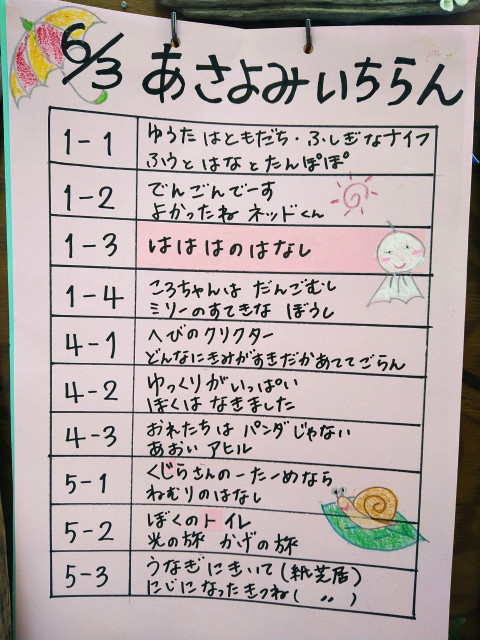 6/3 あさよみいちらん
1-1 ゆうたはともだち・ふしぎなナイフ
ふうとはなとたんぽぽ
1-2 でんごんでーす
よかったね ネッドくん
1-3 はははのはなし
1-4 ころちゃんは だんごむし
ミリーのすてきな ぼうし
4-1 へびのクリクター
どんなにきみがすきだかあててごらん
4-2 ゆっくりがいっぱい
ぼくは なきました
4-3 おれたちは パンダじゃない
あおい アヒル
5-1 くじらさんのーたーめなら
ねむりのはなし
5-2 ぼくのトイレ
光の旅 かげの旅
5-3 うなぎにきいて(紙芝居)
にじになったきつね( 〃 )